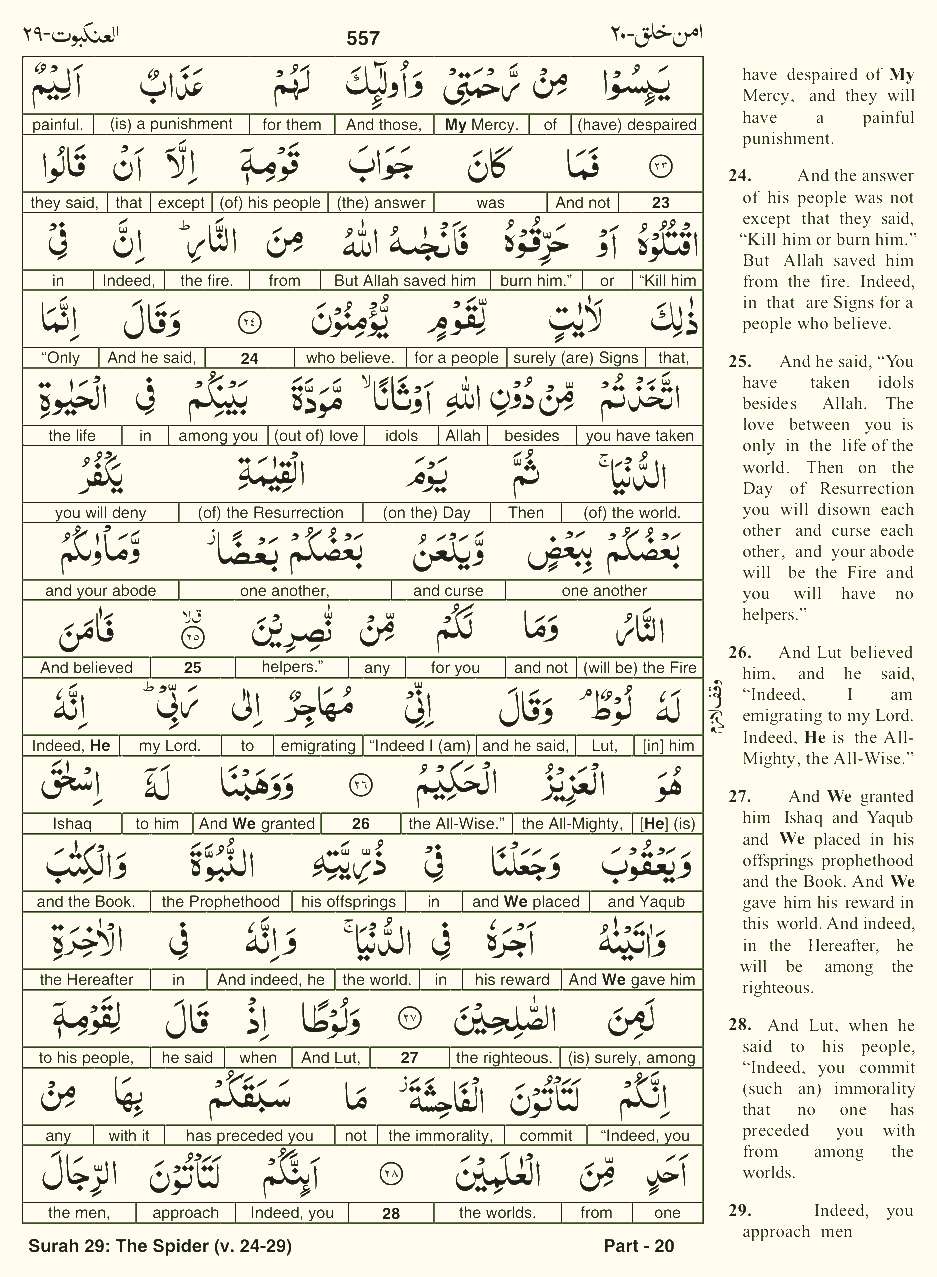 العنكبوت-٢٩
557
امن خلق-٢٠
يَىِٕسُوْا مِنْ رَّحْمَتِيْ وَاُولٰٓىِٕكَ لَهُمْ عَذَابٌ اَلِيْمٌ
(have) despaired of My Mercy. And those, for them (is) a punishment painful.
٢٣ فَمَا كَانَ جَوَابَ قَوْمِهٖٓ اِلَّآ اَنْ قَالُوا
23 And not was (the) answer (of) his people except that they said,
اقْتُلُوْهُ اَوْ حَرِّقُوْهُ فَاَنْجٰىهُ اللّٰهُ مِنَ النَّارِ ؕ اِنَّ فِيْ
“Kill him or burn him.” But Allah saved him from the fire. Indeed, in
ذٰلِكَ لَاٰيٰتٍ لِّقَوْمٍ يُّؤْمِنُوْنَ ٢٤ وَقَالَ اِنَّمَا
that, surely (are) Signs for a people who believe. 24 And he said, “Only
اتَّخَذْتُمْ مِّنْ دُوْنِ اللّٰهِ اَوْثَانًا ۙ مَّوَدَّةَ بَيْنِكُمْ فِي الْحَيٰوةِ
you have taken besides Allah idols (out of) love among you in the life
الدُّنْيَا ۚ ثُمَّ يَوْمَ الْقِيٰمَةِ يَكْفُرُ
(of) the world. Then (on the) Day (of) the Resurrection you will deny
بَعْضُكُمْ بِبَعْضٍ وَّيَلْعَنُ بَعْضُكُمْ بَعْضًا ؗ وَّمَاْوٰىكُمُ
one another and curse one another, and your abode
النَّارُ وَمَا لَكُمْ مِّنْ نّٰصِرِيْنَ ٢٥ ۗۙ فَاٰمَنَ
(will be) the Fire and not for you any helpers.” 25 And believed
لَهٗ لُوْطٌ ۘ وَقَالَ اِنِّيْ مُهَاجِرٌ اِلٰى رَبِّيْ ؕ اِنَّهٗ
وقف لازم
[in] him Lut, and he said, “Indeed I (am) emigrating to my Lord. Indeed, He
هُوَ الْعَزِيْزُ الْحَكِيْمُ ٢٦ وَوَهَبْنَا لَهٗٓ اِسْحٰقَ
[He] (is) the All-Mighty, the All-Wise.” 26 And We granted to him Ishaq
وَيَعْقُوْبَ وَجَعَلْنَا فِيْ ذُرِّيَّتِهِ النُّبُوَّةَ وَالْكِتٰبَ
and Yaqub and We placed in his offsprings the Prophethood and the Book.
وَاٰتَيْنٰهُ اَجْرَهٗ فِي الدُّنْيَا ۚ وَاِنَّهٗ فِي الْاٰخِرَةِ
And We gave him his reward in the world. And indeed, he in the Hereafter
لَمِنَ الصّٰلِحِيْنَ ٢٧ وَلُوْطًا اِذْ قَالَ لِقَوْمِهٖٓ
(is) surely, among the righteous. 27 And Lut, when he said to his people,
اِنَّكُمْ لَتَاْتُوْنَ الْفَاحِشَةَ ؗ مَا سَبَقَكُمْ بِهَا مِنْ
“Indeed, you commit the immorality, not has preceded you with it any
اَحَدٍ مِّنَ الْعٰلَمِيْنَ ٢٨ اَىِٕنَّكُمْ لَتَاْتُوْنَ الرِّجَالَ
one from the worlds. 28 Indeed, you approach the men,
have despaired of My
Mercy, and they will
have a painful
punishment.
24. And the answer
of his people was not
except that they said,
“Kill him or burn him.”
But Allah saved him
from the fire. Indeed,
in that are Signs for a
people who believe.
25. And he said, “You
have taken idols
besides Allah. The
love between you is
only in the life of the
world. Then on the
Day of Resurrection
you will disown each
other and curse each
other, and your abode
will be the Fire and
you will have no
helpers.”
26. And Lut believed
him, and he said,
“Indeed, I am
emigrating to my Lord.
Indeed, He is the All-
Mighty, the All-Wise.”
27. And We granted
him Ishaq and Yaqub
and We placed in his
offsprings prophethood
and the Book. And We
gave him his reward in
this world. And indeed,
in the Hereafter, he
will be among the
righteous.
28. And Lut, when he
said to his people,
“Indeed, you commit
(such an) immorality
that no one has
preceded you with
from among the
worlds.
29. Indeed, you
approach men
Surah 29: The Spider (v. 24-29)
Part - 20